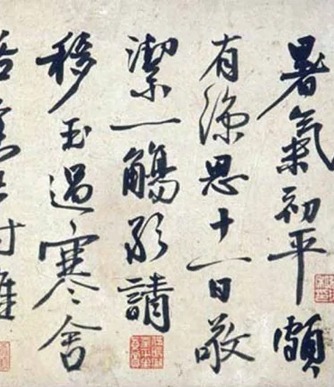 暑氣初平頗
有涼思十一日敬
潔一觴敢請
移玉過寒舍